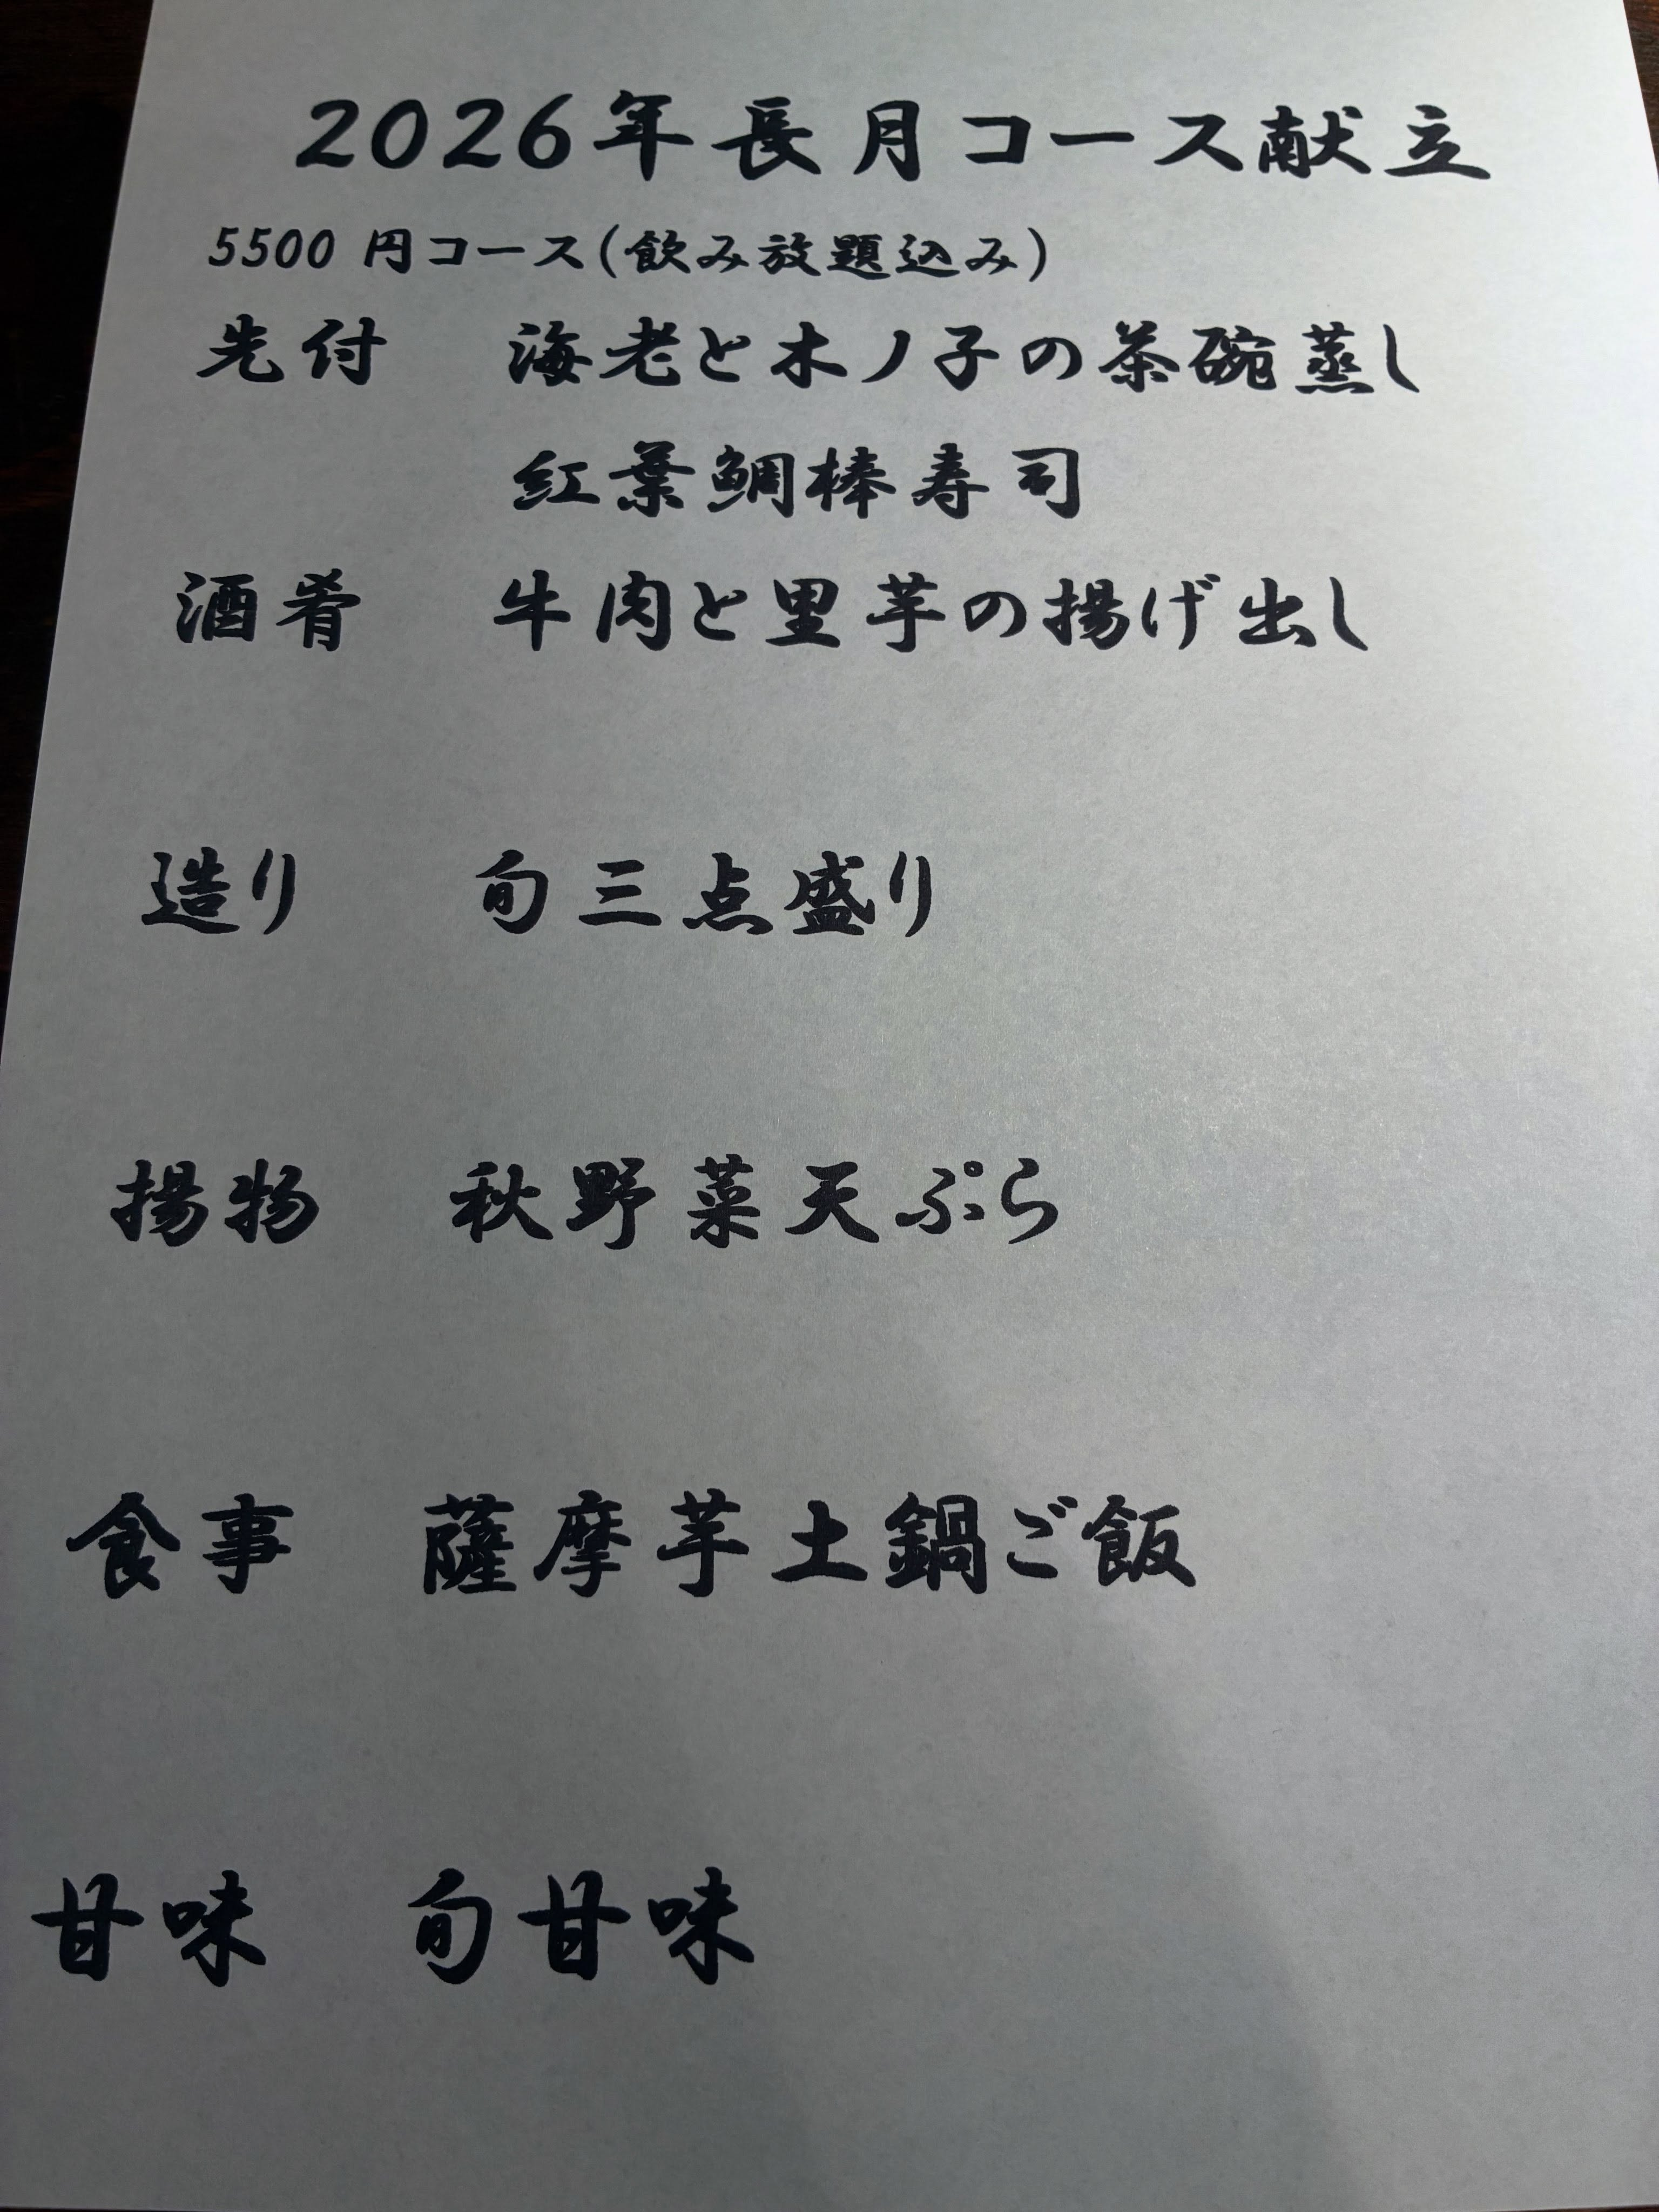 2026年長月コース献立
5500 円コース(飲み放題込み)
先付 海老と木ノ子の茶碗蒸し
紅葉鯛棒寿司
酒肴 牛肉と里芋の揚げ出し
造り 旬三点盛り
揚物 秋野菜天ぷら
食事 薩摩芋土鍋ご飯
甘味 旬甘味